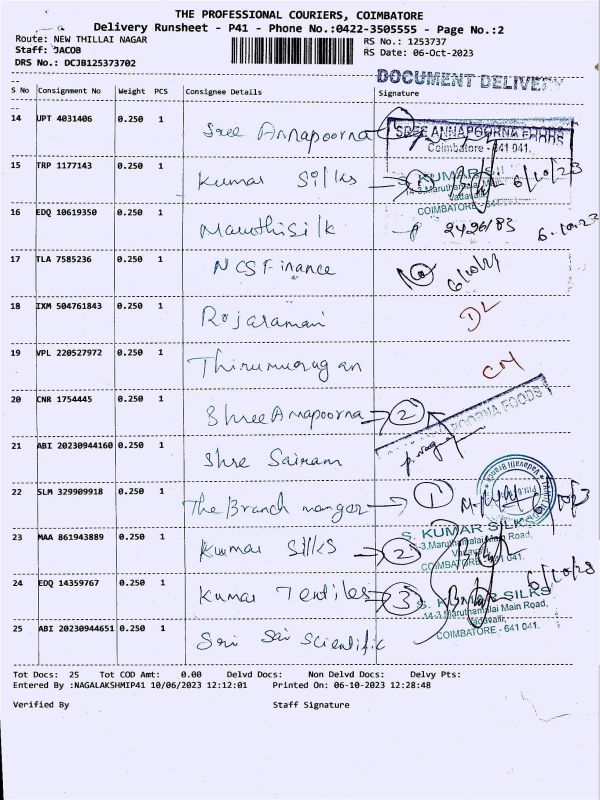 THE PROFESSIONAL COURIERS, COIMBATORE
Delivery Runsheet - P41 - Phone No.:0422-3505555 - Page No.:2
Route: NEW THILLAI NAGAR RS No.: 1253737
Staff: JACOB RS Date: 06-Oct-2023
DRS No.: DCJB125373702
DOCUMENT DELIVERY
S No Consignment No Weight PCS Consignee Details Signature
14 UPT 4031406 0.250 1 Sree Annapoorna SREE ANNAPOORNA FOODS
Coimbatore - 641 041.
15 TRP 1177143 0.250 1 Kumar Silks S. KUMAR S 6/10/23
14-3, Maruthamalai Main
Vadavalli
COIMBATORE - 641
16 EDQ 10619350 0.250 1 MaruthiSilk 6.10.23
17 TLA 7585236 0.250 1 NCS Finance
18 IXM 504761843 0.250 1 Rojaramani DL
19 VPL 220527972 0.250 1 Thirumurugan CM
20 CNR 1754445 0.250 1 Shree Annapoorna 2 ANNAPOORNA FOODS
21 ABI 20230944160 0.250 1 Shre Sairam
22 SLM 329909918 0.250 1 The Branch manger 1
23 MAA 861943889 0.250 1 Kumar Silks 2 S. KUMAR SILKS
14-3, Maruthamalai Main Road,
Vadavalli,
COIMBATORE - 641 041.
24 EDQ 14359767 0.250 1 Kumar Textiles 3 S. KUMAR SILKS 6/10/23
14-3, Maruthamalai Main Road,
Vadavalli,
COIMBATORE - 641 041.
25 ABI 20230944651 0.250 1 Sri Sai Scientific
Tot Docs: 25 Tot COD Amt: 0.00 Delvd Docs: Non Delvd Docs: Delvy Pts:
Entered By :NAGALAKSHMIP41 10/06/2023 12:12:01 Printed On: 06-10-2023 12:28:48
Verified By Staff Signature